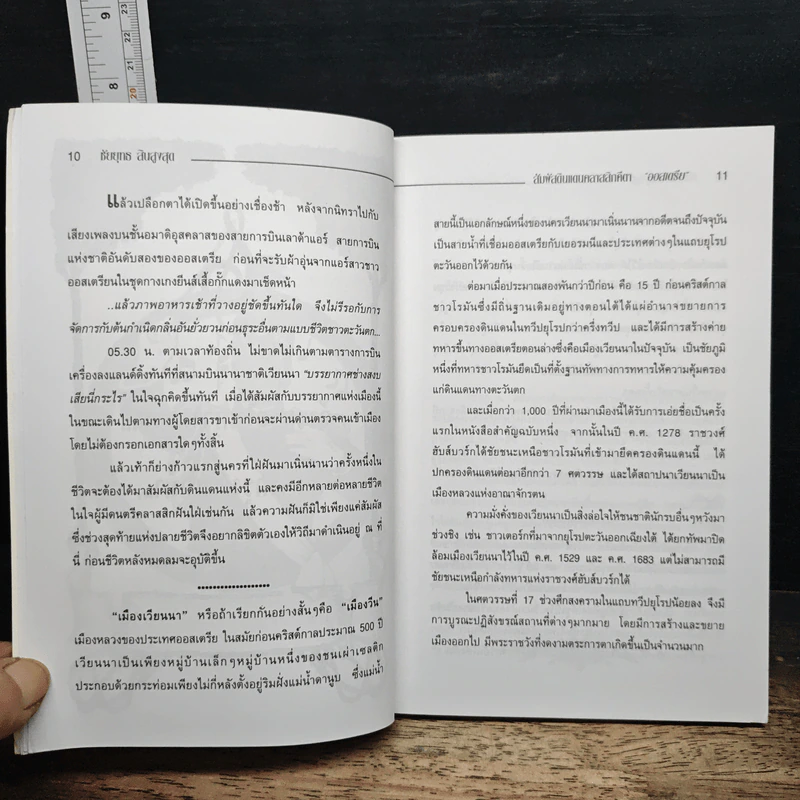 9
8
23
22
21
20
10 ชัยยุทธ สินสูงสุด
แล้วเปลือกตาได้เปิดขึ้นอย่างเชื่องช้า หลังจากนิทราไปกับ
เสียงเพลงบนชั้นอมาดิอุสคลาสของสายการบินเลาด้าแอร์ สายการบิน
แห่งชาติอันดับสองของออสเตรีย ก่อนที่จะรับผ้าอุ่นจากแอร์สาวชาว
ออสเตรียนในชุดกางเกงยีนส์เสื้อกั๊กแดงมาเช็ดหน้า
..แล้วภาพอาหารเช้าที่วางอยู่ชัดขึ้นทันใด จึงไม่รีรอกับการ
จัดการกับต้นกำเนิดกลิ่นอันยั่วยวนก่อนธุระอื่นตามแบบชีวิตชาวตะวันตก...
05.30 น. ตามเวลาท้องถิ่น ไม่ขาดไม่เกินตามตารางการบิน
เครื่องลงแลนด์ดิ้งทันทีที่สนามบินนานาชาติเวียนนา "บรรยากาศช่างสงบ
เสียนี่กระไร" ในใจฉุกคิดขึ้นทันที เมื่อได้สัมผัสกับบรรยากาศแห่งเมืองนี้
ในขณะเดินไปตามทางผู้โดยสารขาเข้าก่อนจะผ่านด่านตรวจคนเข้าเมือง
โดยไม่ต้องกรอกเอกสารใดๆทั้งสิ้น
แล้วเท้าก็ย่างก้าวแรกสู่นครที่ใฝ่ฝันมาเนิ่นนานว่าครั้งหนึ่งใน
ชีวิตจะต้องได้มาสัมผัสกับดินแดนแห่งนี้ และคงมีอีกหลายต่อหลายชีวิต
ในใจผู้มีดนตรีคลาสสิกฝันใฝ่เช่นกัน แล้วความฝันก็มิใช่เพียงแค่สัมผัส
ซึ่งช่วงสุดท้ายแห่งปลายชีวิตจึงอยากลิขิตตัวเองให้วิถีมาดำเนินอยู่ ณ ที่
นี่ ก่อนชีวิตหลังหมดลมจะอุบัติขึ้น
....................
"เมืองเวียนนา" หรือถ้าเรียกกันอย่างสั้นๆคือ "เมืองวีน"
เมืองหลวงของประเทศออสเตรีย ในสมัยก่อนคริสต์กาลประมาณ 500 ปี
เวียนนาเป็นเพียงหมู่บ้านเล็กๆหมู่บ้านหนึ่งของชนเผ่าเซลติก
ประกอบด้วยกระท่อมเพียงไม่กี่หลังตั้งอยู่ริมฝั่งแม่น้ำดานูบ ซึ่งแม่น้ำ
สัมผัสดินแดนคลาสสิกคีตา "ออสเตรีย" 11
สายนี้เป็นเอกลักษณ์หนึ่งของนครเวียนนามาเนิ่นนานจากอดีตจนถึงปัจจุบัน
เป็นสายน้ำที่เชื่อมออสเตรียกับเยอรมนีและประเทศต่างๆในแถบยุโรป
ตะวันออกไว้ด้วยกัน
ต่อมาเมื่อประมาณสองพันกว่าปีก่อน คือ 15 ปี ก่อนคริสต์กาล
ชาวโรมันซึ่งมีถิ่นฐานเดิมอยู่ทางตอนใต้ได้แผ่อำนาจขยายการ
ครอบครองดินแดนในทวีปยุโรปกว่าครึ่งทวีป และได้มีการสร้างค่าย
ทหารขึ้นทางออสเตรียตอนล่างซึ่งคือเมืองเวียนนาในปัจจุบัน เป็นชัยภูมิ
หนึ่งที่ทหารชาวโรมันยึดเป็นที่ตั้งฐานทัพทางการทหารให้ความคุ้มครอง
แก่ดินแดนทางตะวันตก
และเมื่อกว่า 1,000 ปีที่ผ่านมาเมืองนี้ได้รับการเอ่ยชื่อเป็นครั้ง
แรกในหนังสือสำคัญฉบับหนึ่ง จากนั้นในปี ค.ศ. 1278 ราชวงศ์
ฮับส์บวร์กได้ชัยชนะเหนือชาวโรมันที่เข้ามายึดครองดินแดนนี้ ได้
ปกครองดินแดนต่อมาอีกกว่า 7 ศตวรรษ และได้สถาปนาเวียนนาเป็น
เมืองหลวงแห่งอาณาจักรตน
ความมั่งคั่งของเวียนนาเป็นสิ่งล่อใจให้ชนชาตินักรบอื่นๆหวังมา
ช่วงชิง เช่น ชาวเตอร์กที่มาจากยุโรปตะวันออกเฉียงใต้ ได้ยกทัพมาปิด
ล้อมเมืองเวียนนาไว้ในปี ค.ศ. 1529 และ ค.ศ. 1683 แต่ไม่สามารถมี
ชัยชนะเหนือกำลังทหารแห่งราชวงศ์ฮับส์บวร์กได้
ในศตวรรษที่ 17 ช่วงศึกสงครามในแถบทวีปยุโรปน้อยลง จึงมี
การบูรณะปฏิสังขรณ์สถานที่ต่างๆมากมาย โดยมีการสร้างและขยาย
เมืองออกไป มีพระราชวังที่งดงามตระการตาเกิดขึ้นเป็นจำนวนมาก